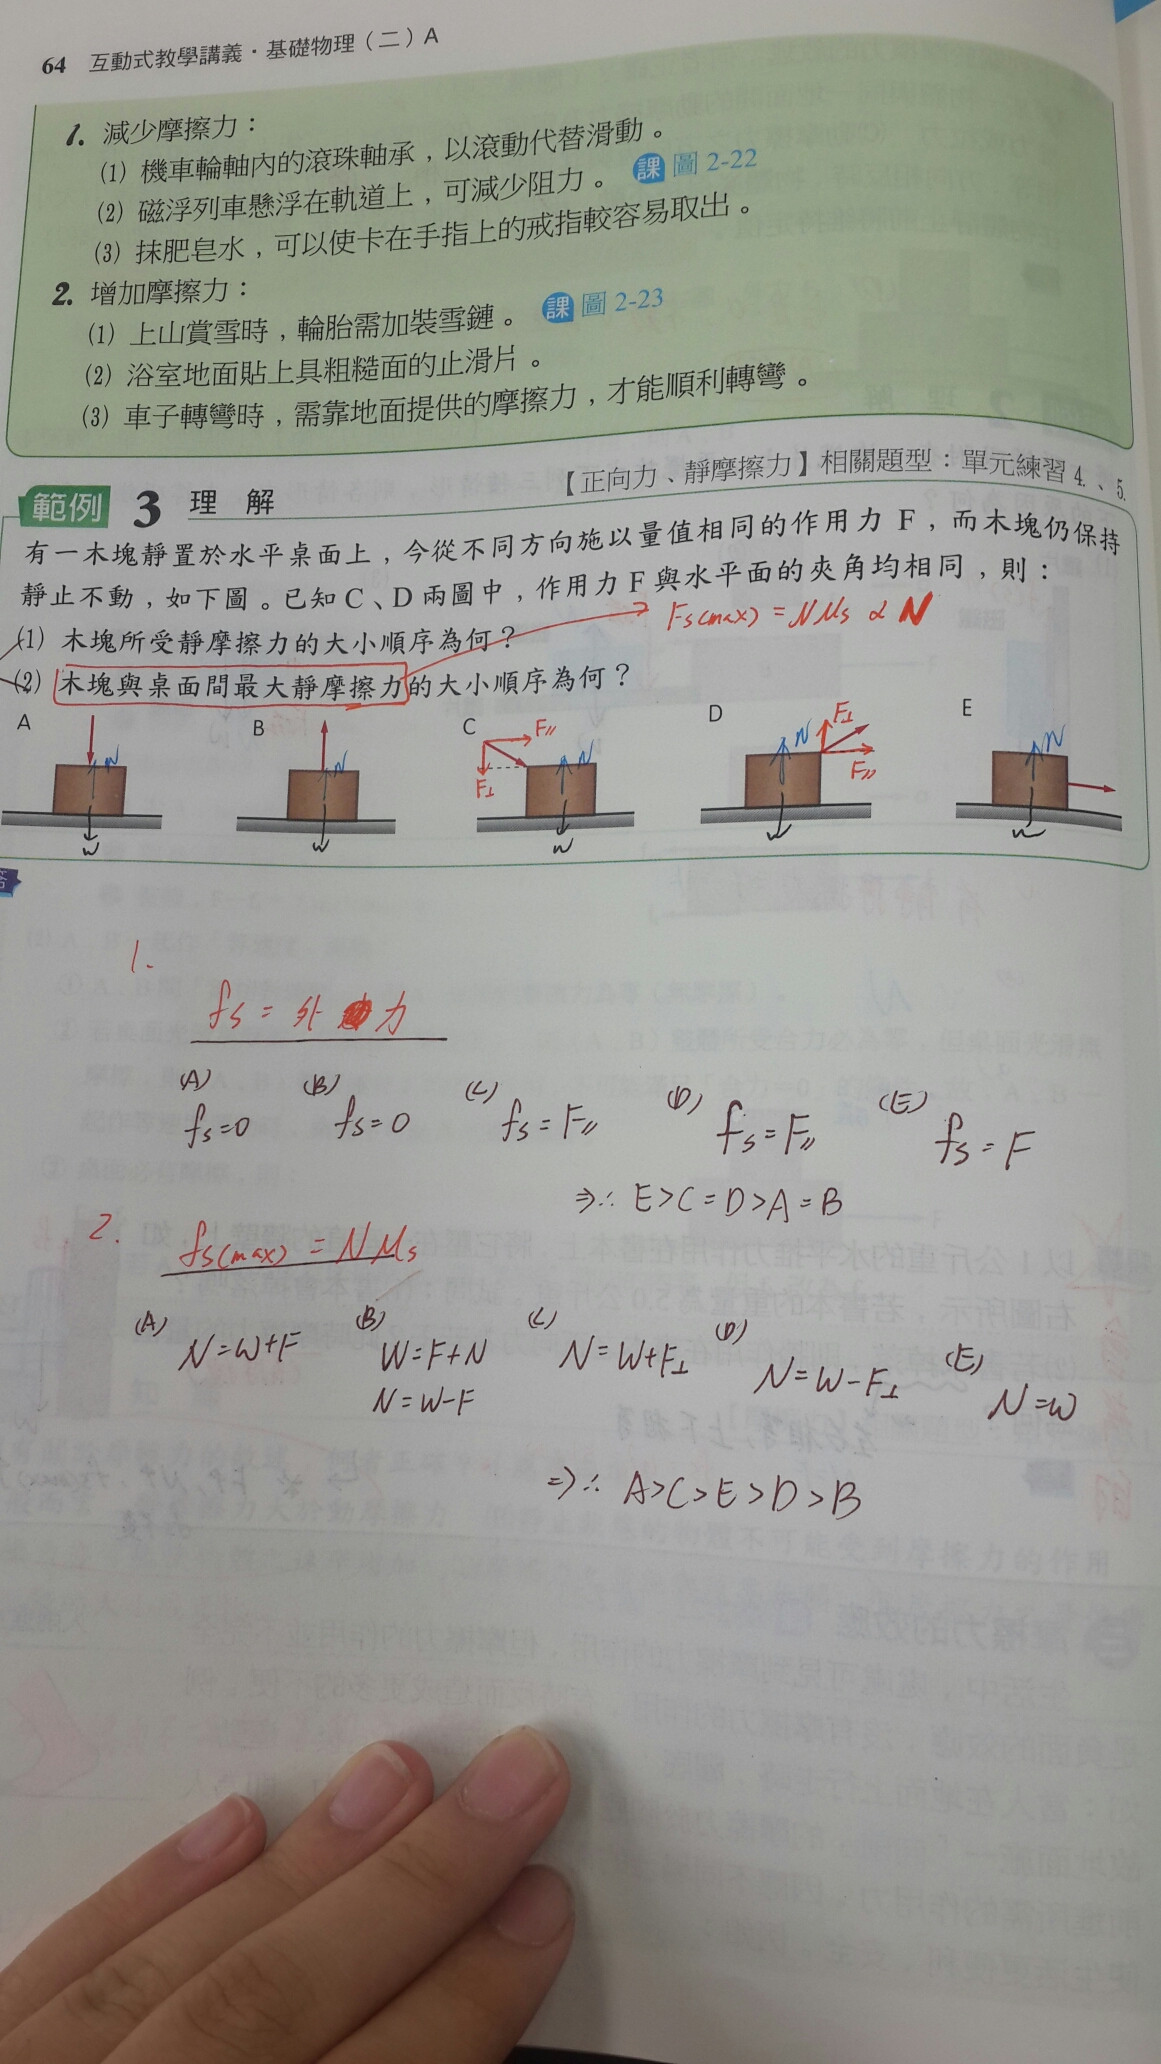 64 互動式教學講義·基礎物理(二)A
1. 減少摩擦力:
(1) 機車輪軸內的滾珠軸承,以滾動代替滑動。
(2) 磁浮列車懸浮在軌道上,可減少阻力。 課 圖 2-22
(3) 抹肥皂水,可以使卡在手指上的戒指較容易取出。
2. 增加摩擦力:
(1) 上山賞雪時,輪胎需加裝雪鏈。 課 圖 2-23
(2) 浴室地面貼上具粗糙面的止滑片。
(3) 車子轉彎時,需靠地面提供的摩擦力,才能順利轉彎。
【正向力、靜摩擦力】相關題型:單元練習 4.、5.
範例 3 理解
有一木塊靜置於水平桌面上,今從不同方向施以量值相同的作用力 F,而木塊仍保持
靜止不動,如下圖。已知 C、D 兩圖中,作用力 F 與水平面的夾角均相同,則:
Fs(max) = Nμs ∝ N
(1) 木塊所受靜摩擦力的大小順序為何?
(2) 木塊與桌面間最大靜摩擦力的大小順序為何?
A B C D E
F// F⊥
F⊥ F//
N N N N N
W W W W W
1.
fs = 外力
(A) (B) (C) (D) (E)
fs=0 fs=0 fs=F// fs=F// fs=F
⇒∴ E>C=D>A=B
2. fs(max) = Nμs
(A) (B) (C) (D) (E)
N=W+F W=F+N N=W+F⊥ N=W-F⊥ N=W
N=W-F
⇒∴ A>C>E>D>B